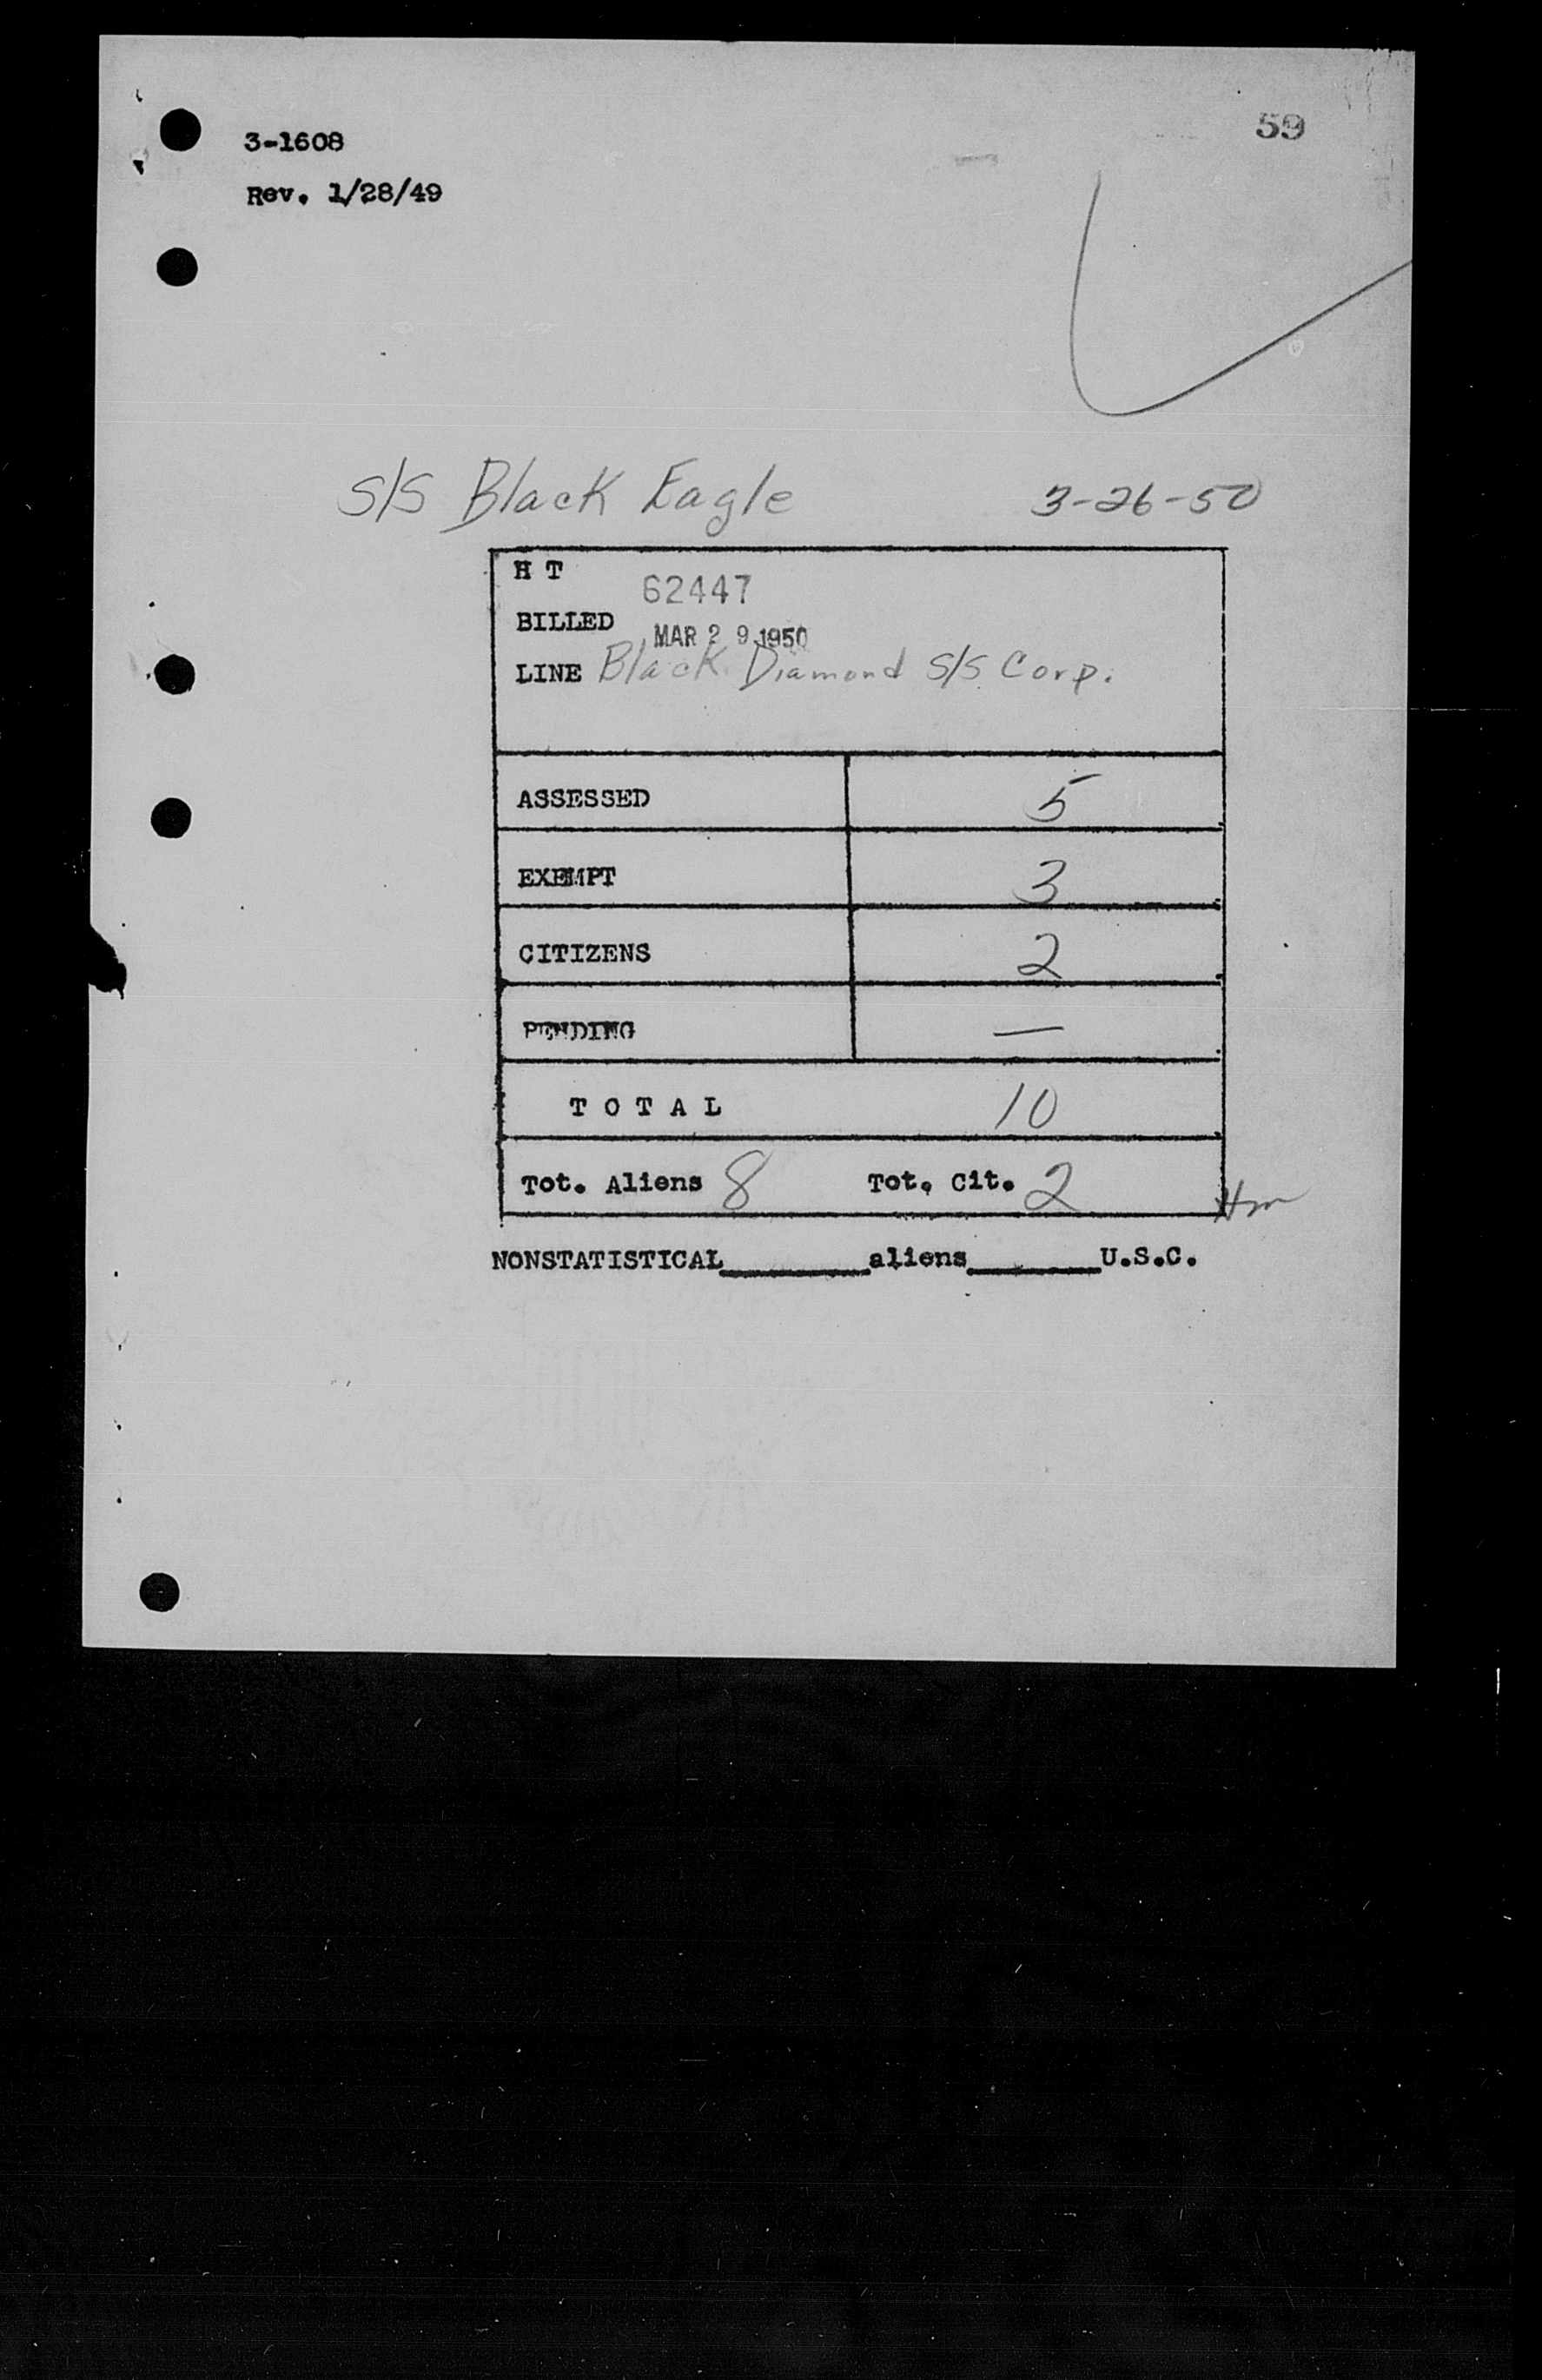 59
3-1608
Rev. 1/28/49
S/S Black Eagle 3-26-50
H T 62447
BILLED MAR 29 1950
LINE Black Diamond S/S Corp.
ASSESSED 5
EXEMPT 3
CITIZENS 2
PENDING —
T O T A L 10
Tot. Aliens 8 Tot. Cit. 2
NONSTATISTICAL________aliens________U.S.C.